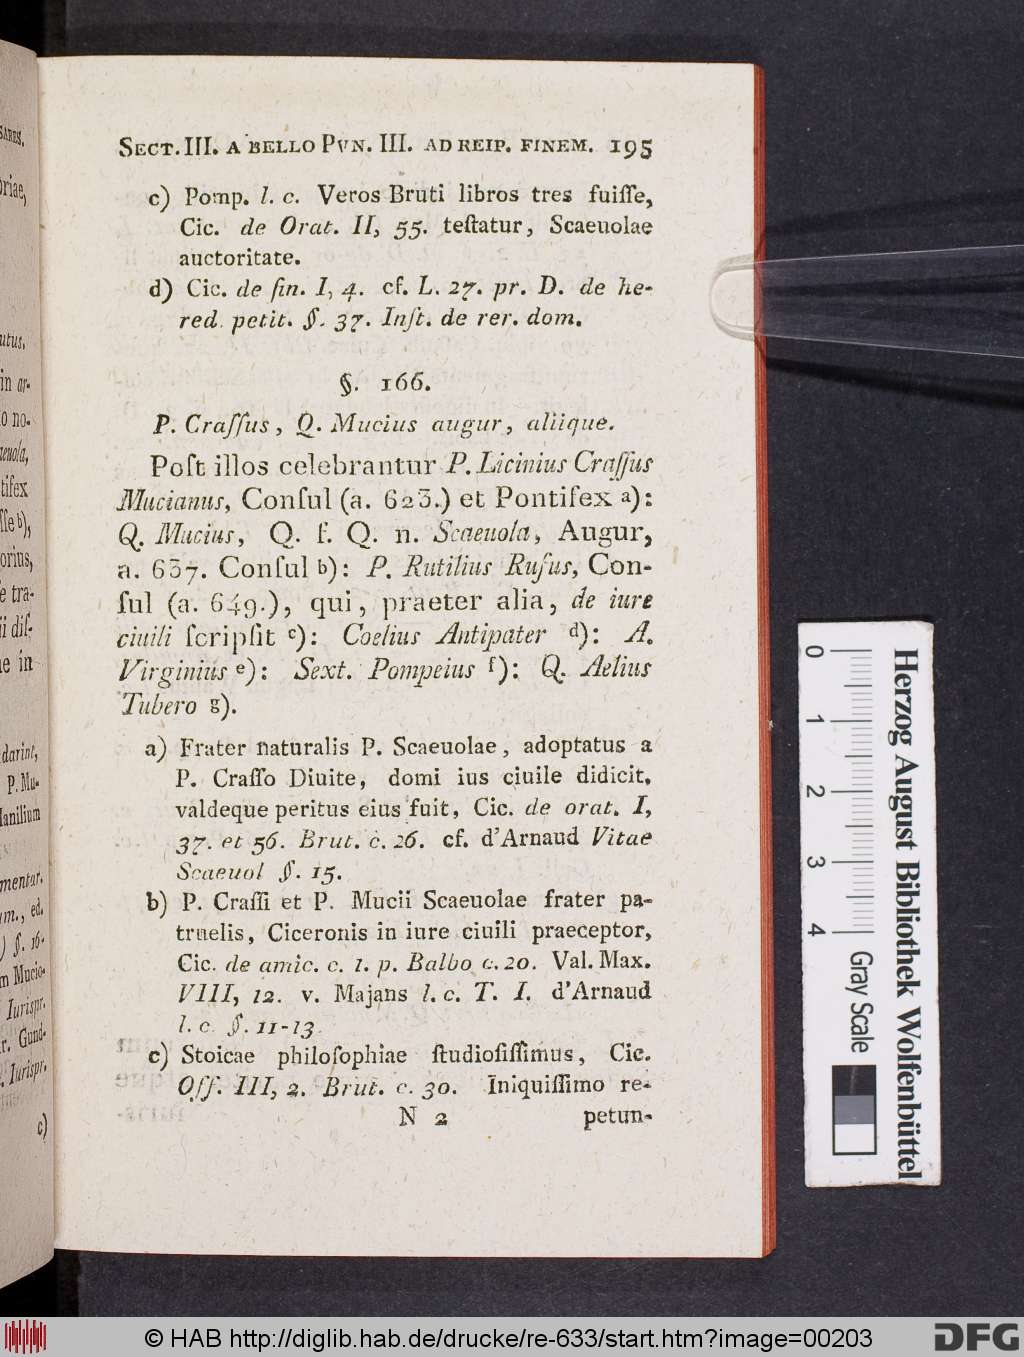 SARES.
oriae,
utus.
in ar-
o no-
aeuola,
tifex
ſſe b),
orius,
e tra-
ii diſ-
ne in
darint,
P. Mu-
Manilium
mentar.
um., ed.
) §. 16.
m Mucio.
Iurispr.
r. Gund-
. Iurispr.
c)
SECT. III. A BELLO PVN. III. AD REIP. FINEM. 195
c) Pomp. l. c. Veros Bruti libros tres fuiſſe,
Cic. de Orat. II, 55. teſtatur, Scaeuolae
auctoritate.
d) Cic. de fin. I, 4. cf. L. 27. pr. D. de he-
red. petit. §. 37. Inſt. de rer. dom.
§. 166.
P. Craſſus, Q. Mucius augur, aliique.
Poſt illos celebrantur P. Licinius Craſſus
Mucianus, Conſul (a. 623.) et Pontifex a):
Q. Mucius, Q. f. Q. n. Scaeuola, Augur,
a. 637. Conſul b): P. Rutilius Rufus, Con-
ſul (a. 649.), qui, praeter alia, de iure
ciuili ſcripſit c): Coelius Antipater d): A.
Virginius e): Sext. Pompeius f): Q. Aelius
Tubero g).
a) Frater naturalis P. Scaeuolae, adoptatus a
P. Craſſo Diuite, domi ius ciuile didicit,
valdeque peritus eius fuit, Cic. de orat. I,
37. et 56. Brut. c. 26. cf. d'Arnaud Vitae
Scaeuol §. 15.
b) P. Craſſi et P. Mucii Scaeuolae frater pa-
truelis, Ciceronis in iure ciuili praeceptor,
Cic. de amic. c. 1. p. Balbo c. 20. Val. Max.
VIII, 12. v. Majans l. c. T. I. d'Arnaud
l. c. §. 11-13
c) Stoicae philoſophiae ſtudioſiſſimus, Cic.
Off. III, 2. Brut. c. 30. Iniquiſſimo re-
N 2 petun-
0 1 2 3 4
Herzog August Bibliothek Wolfenbüttel
Gray Scale
© HAB http://diglib.hab.de/drucke/re-633/start.htm?image=00203
DFG